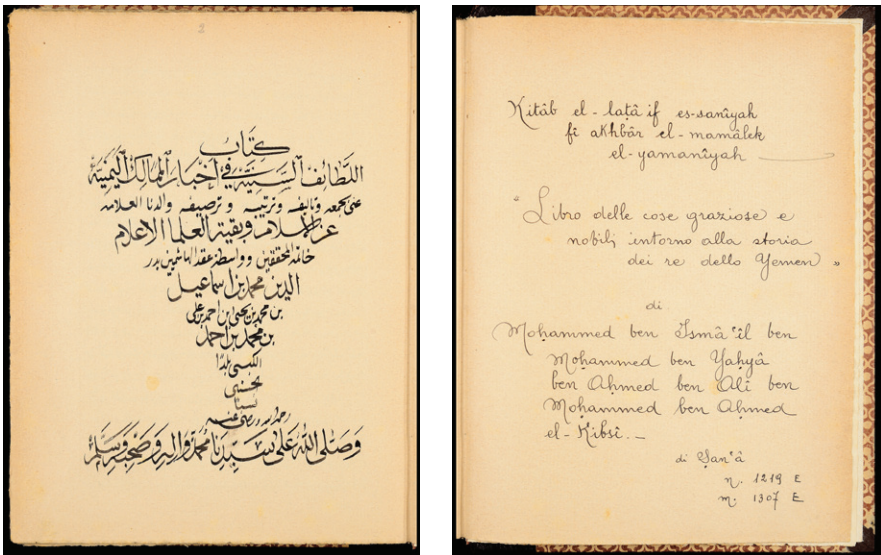 2
كتاب
اللطائف السنية في اخبار الممالك اليمنية
عنى بجمعه وتاليفه وترتيبه وترصيفه والدنا العلامه
عز الاسلام وبقية العلما الاعلام
خاتمة المحققين وواسطة عقد الهاشميين بدر
الدين محمد بن اسماعيل
بن محمد بن يحيى ابن احمد بن علي
بن محمد بن احمد
الكبسي بلدًا
الحسني
نسبًا
رحمه الله ورضي عنه
وصلى الله على سيدنا محمد واله وصحبه وسلم
Kitâb el-laṭâif es-sanîyah
fî akhbâr el-mamâlek
el-yamanîyah
"Libro delle cose graziose e
nobili intorno alla storia
dei re dello Yemen"
di
Moḥammed ben Ismâ'îl ben
Moḥammed ben Yaḥyâ
ben Aḥmed ben Alî ben
Moḥammed ben Aḥmed
el-Kibsî.–
di Ṣan'â
n. 1219 E
m. 1307 E